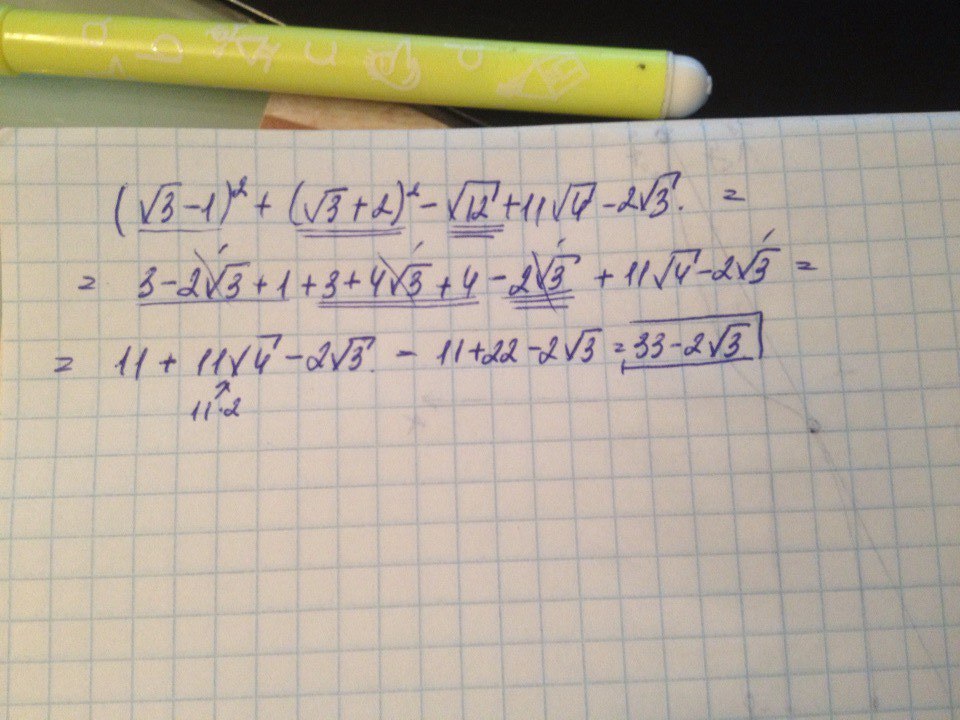 (√3 - 1)² + (√3 + 2)² - √12 + 11√4 - 2√3. =
= 3 - 2√3 + 1 + 3 + 4√3 + 4 - 2√3 + 11√4 - 2√3 =
= 11 + 11√4 - 2√3. - 11 + 22 - 2√3 = 33 - 2√3
11·2